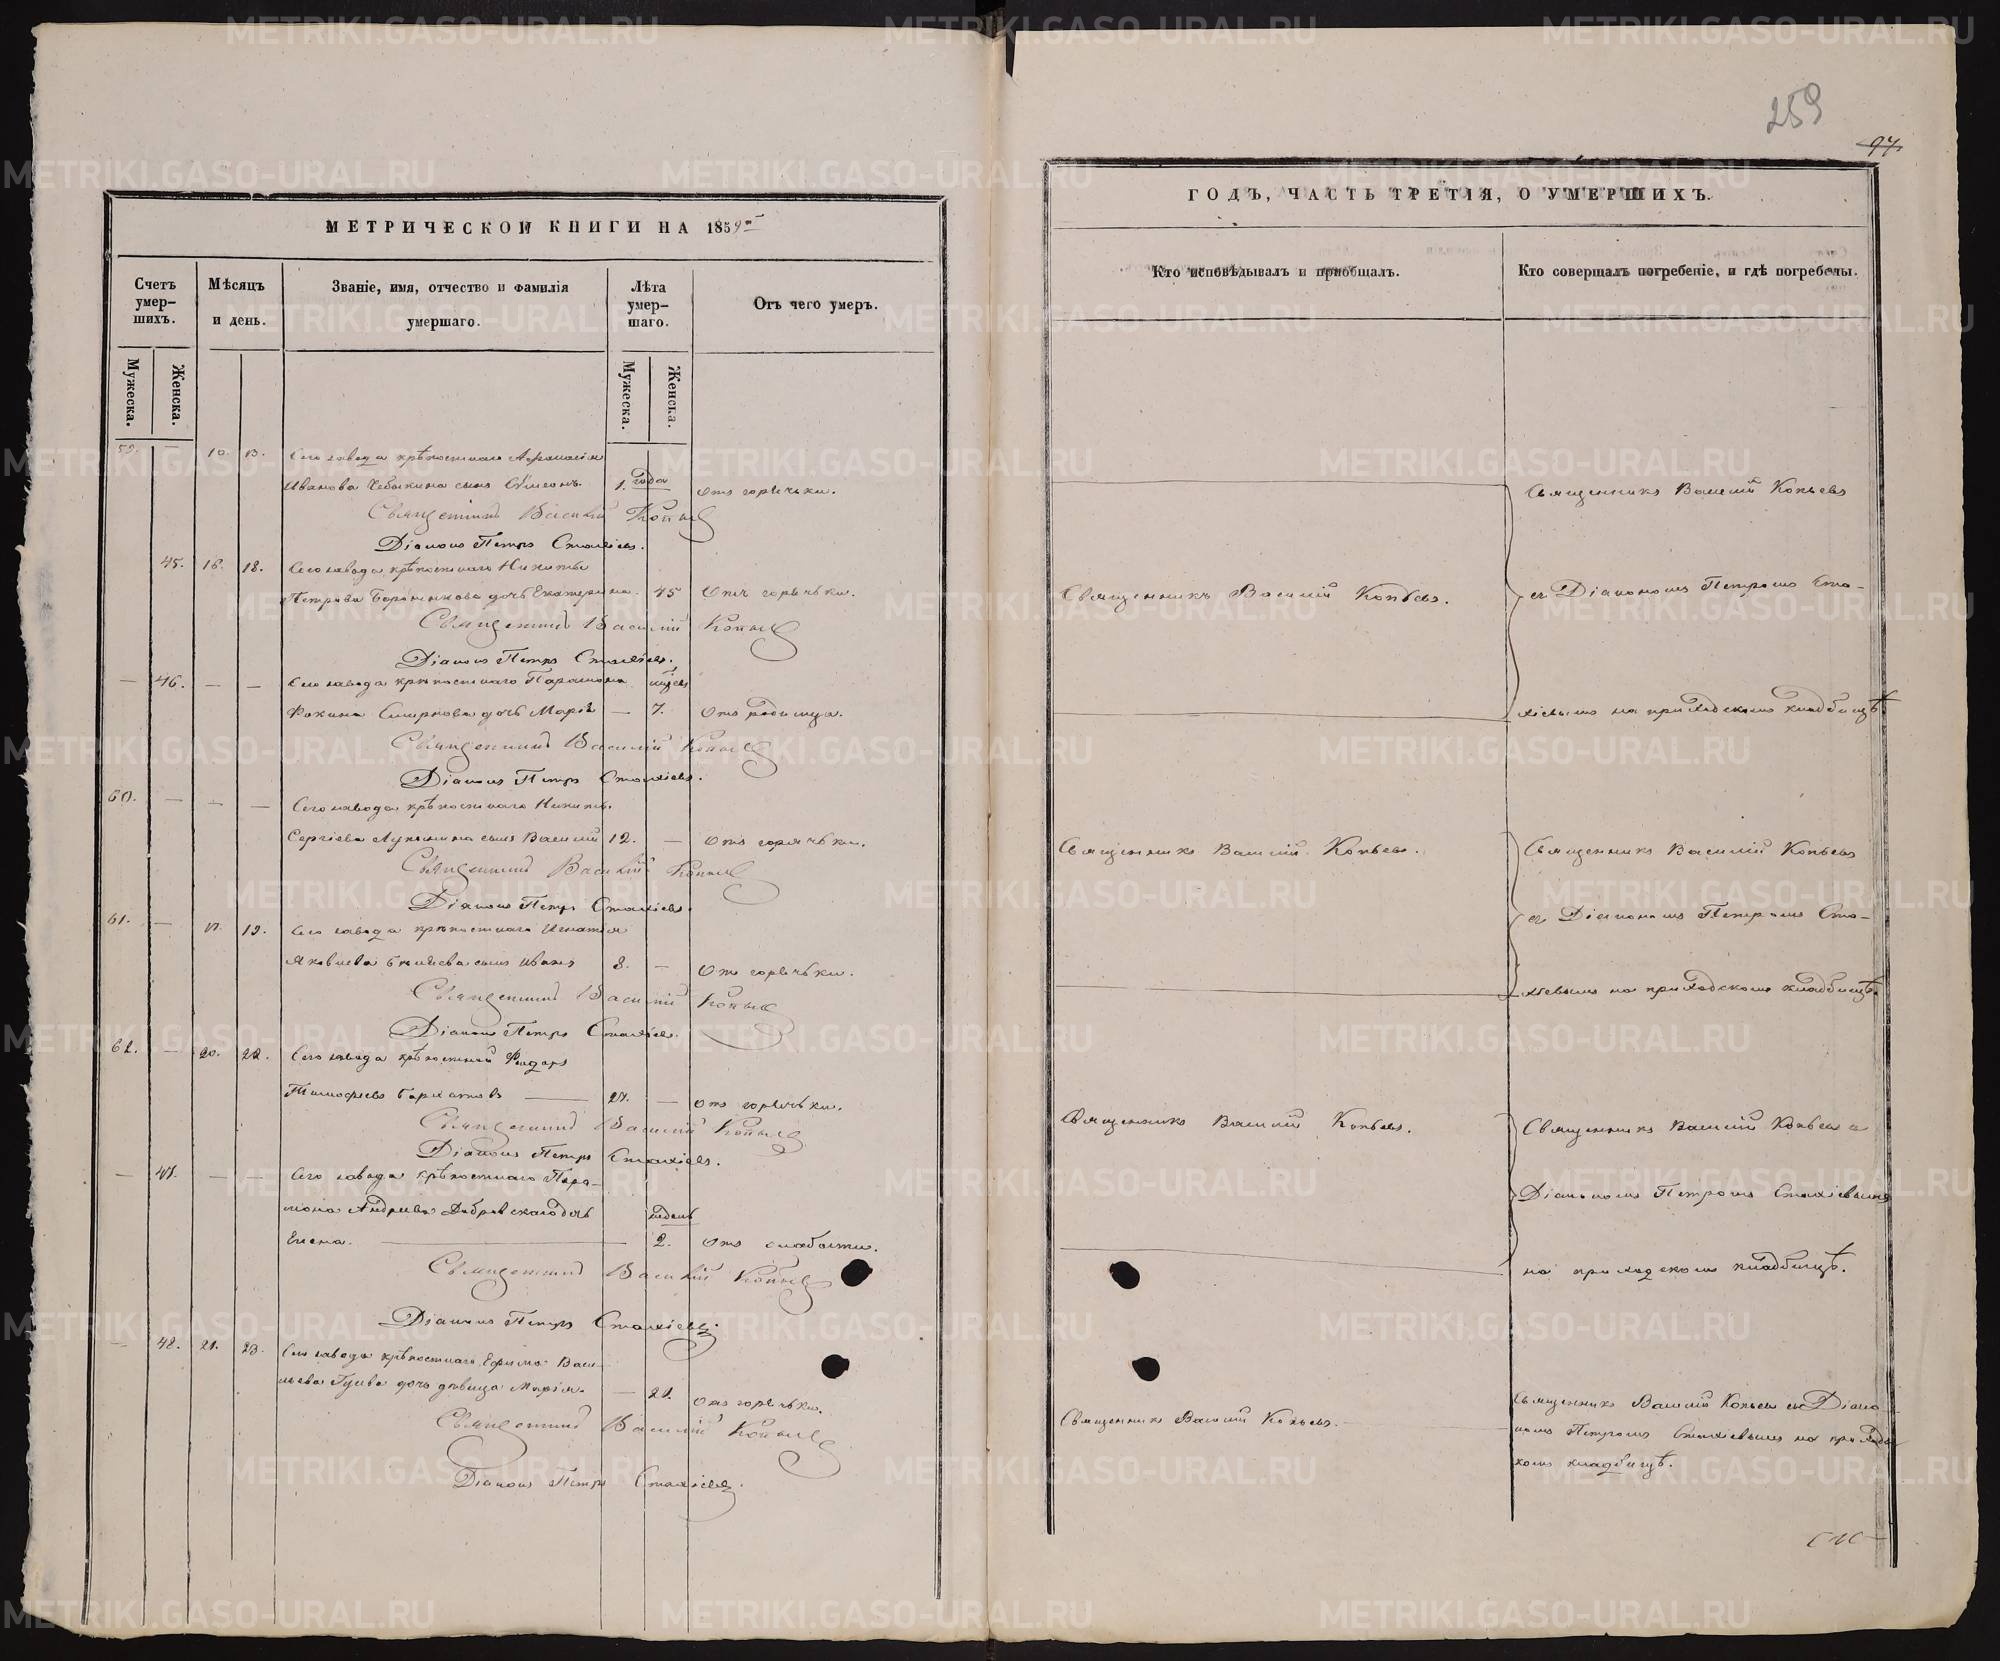 МЕТРИЧЕСКОЙ КНИГИ НА 1859 й
Счетъ умер-
шихъ.
Мѣсяцъ
и день.
Званіе, имя, отчество и фамилія
умершаго.
Лѣта
умер-
шаго.
Отъ чего умеръ.
Мужеска.
Женска.
Мужеска.
Женска.
59. — 10. 13. Сего завода крѣпостнаго Афанасія
Иванова Чебыкина сынъ Сѵмеонъ. 1. года отъ горячьки.
Священникъ Василій Копьев
Діаконъ Петръ Стахіевъ.
45. 16. 18. Сего завода крѣпостнаго Никиты
Петрова дочь Екатерина. 45 Отъ горячьки.
Священникъ Василій Копьев
Діаконъ Петръ Стахіевъ.
— 46. — — Сего завода крѣпостнаго Парамона мцевъ
Фокина Смирнова дочь Марія — 7. отъ родимца.
Священникъ Василій Копьев
Діаконъ Петръ Стахіевъ.
60. — — — Сего завода крѣпостнаго Никиты
Сергіева сынъ Василій 12. — отъ горячьки.
Священникъ Василій Копьев
Діаконъ Петръ Стахіевъ.
61. — 17. 19. Сего завода крѣпостнаго Игнатія
Яковлева сынъ Иванъ 8. — отъ горячьки.
Священникъ Василій Копьев
Діаконъ Петръ Стахіевъ.
62. — 20. 22. Сего завода крѣпостной Фиодоръ
Тимофѣевъ Бархатовъ — 27. — отъ горячьки.
Священникъ Василій Копьев
Діаконъ Петръ Стахіевъ.
— 47. — — Сего завода крѣпостнаго Пара-
мона Андреева дочь недель
Елена. — 2. отъ слабости.
Священникъ Василій Копьев
Діаконъ Петръ Стахіевъ.
— 48. 21. 23. Сего завода крѣпостнаго Ефима Васи-
льева Гусева дочь дѣвица Марія. — 21. отъ горячьки.
Священникъ Василій Копьев
Діаконъ Петръ Стахіевъ.
259
97
ГОДЪ, ЧАСТЬ ТРЕТІЯ, О УМЕРШИХЪ.
Кто исповѣдывалъ и пріобщалъ.
Кто совершалъ погребеніе, и гдѣ погребены.
Священникъ Василій Копьевъ
Священникъ Василій Копьевъ.
съ Діакономъ Петромъ Ста-
хіевымъ на приходскомъ кладбищѣ.
Священникъ Василій Копьевъ.
Священникъ Василій Копьевъ
съ Діакономъ Петромъ Ста-
хіевымъ на приходскомъ кладбищѣ.
Священникъ Василій Копьевъ.
Священникъ Василій Копьевъ съ
Діакономъ Петромъ Стахіевымъ
на приходскомъ кладбищѣ.
Священникъ Василій Копьевъ.
Священникъ Василій Копьевъ съ Діако-
номъ Петромъ Стахіевымъ на приходс-
комъ кладбищѣ.
METRIKI.GASO-URAL.RU